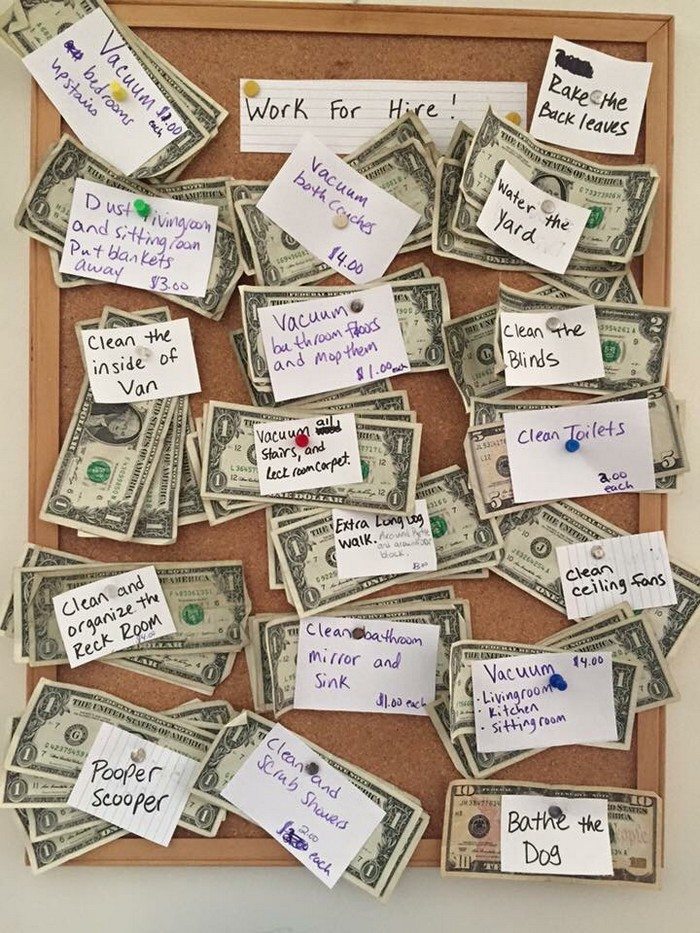 Work For Hire!
Vacuum $2.00
bedrooms each
upstairs
Rake the
Back leaves
Dust livingroom
and sittingroom
Put blankets
away $3.00
Vacuum
both couches
$4.00
Water the
Yard
Clean the
inside of
Van
Vacuum
bathroom floors
and mop them
$1.00 each
Clean the
Blinds
Vacuum all
Stairs, and
Reck room carpet.
Clean Toilets
2.00
each
Extra Long Dog
Walk.
block.
Clean
ceiling fans
Clean and
organize the
Reck Room
Clean bathroom
mirror and
sink
$1.00 each
Vacuum $4.00
• Livingroom
• Kitchen
• sittingroom
Pooper
Scooper
Clean and
scrub showers
2.00
each
Bathe the
Dog
THE UNITED STATES OF AMERICA
ONE DOLLAR